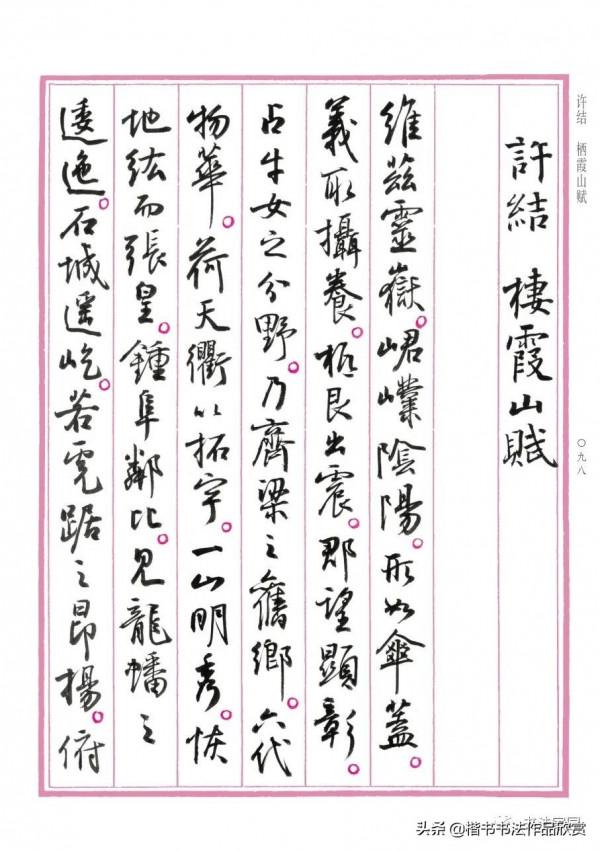 許結 棲霞山賦
維茲靈嶽。峮嶫陰陽。形如傘蓋。
義取攝養。柢艮出震。郡望顯彰。
占牛女之分野。乃齊梁之舊鄉。六代
物華。荷天衢以拓宇。一山明秀。恢
地紘而張皇。鍾阜鄰比。見龍蟠之
逶迤。石城遥屹。若虎踞之昂揚。俯
许结 栖霞山赋
〇九八
头条 @楷书书法作品欣赏